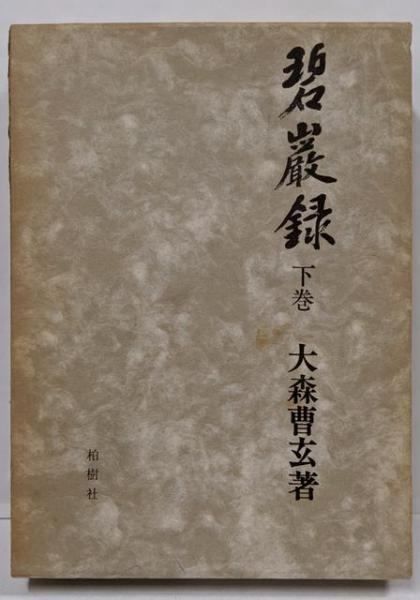 碧巌録
下巻
大森曹玄著
柏樹社